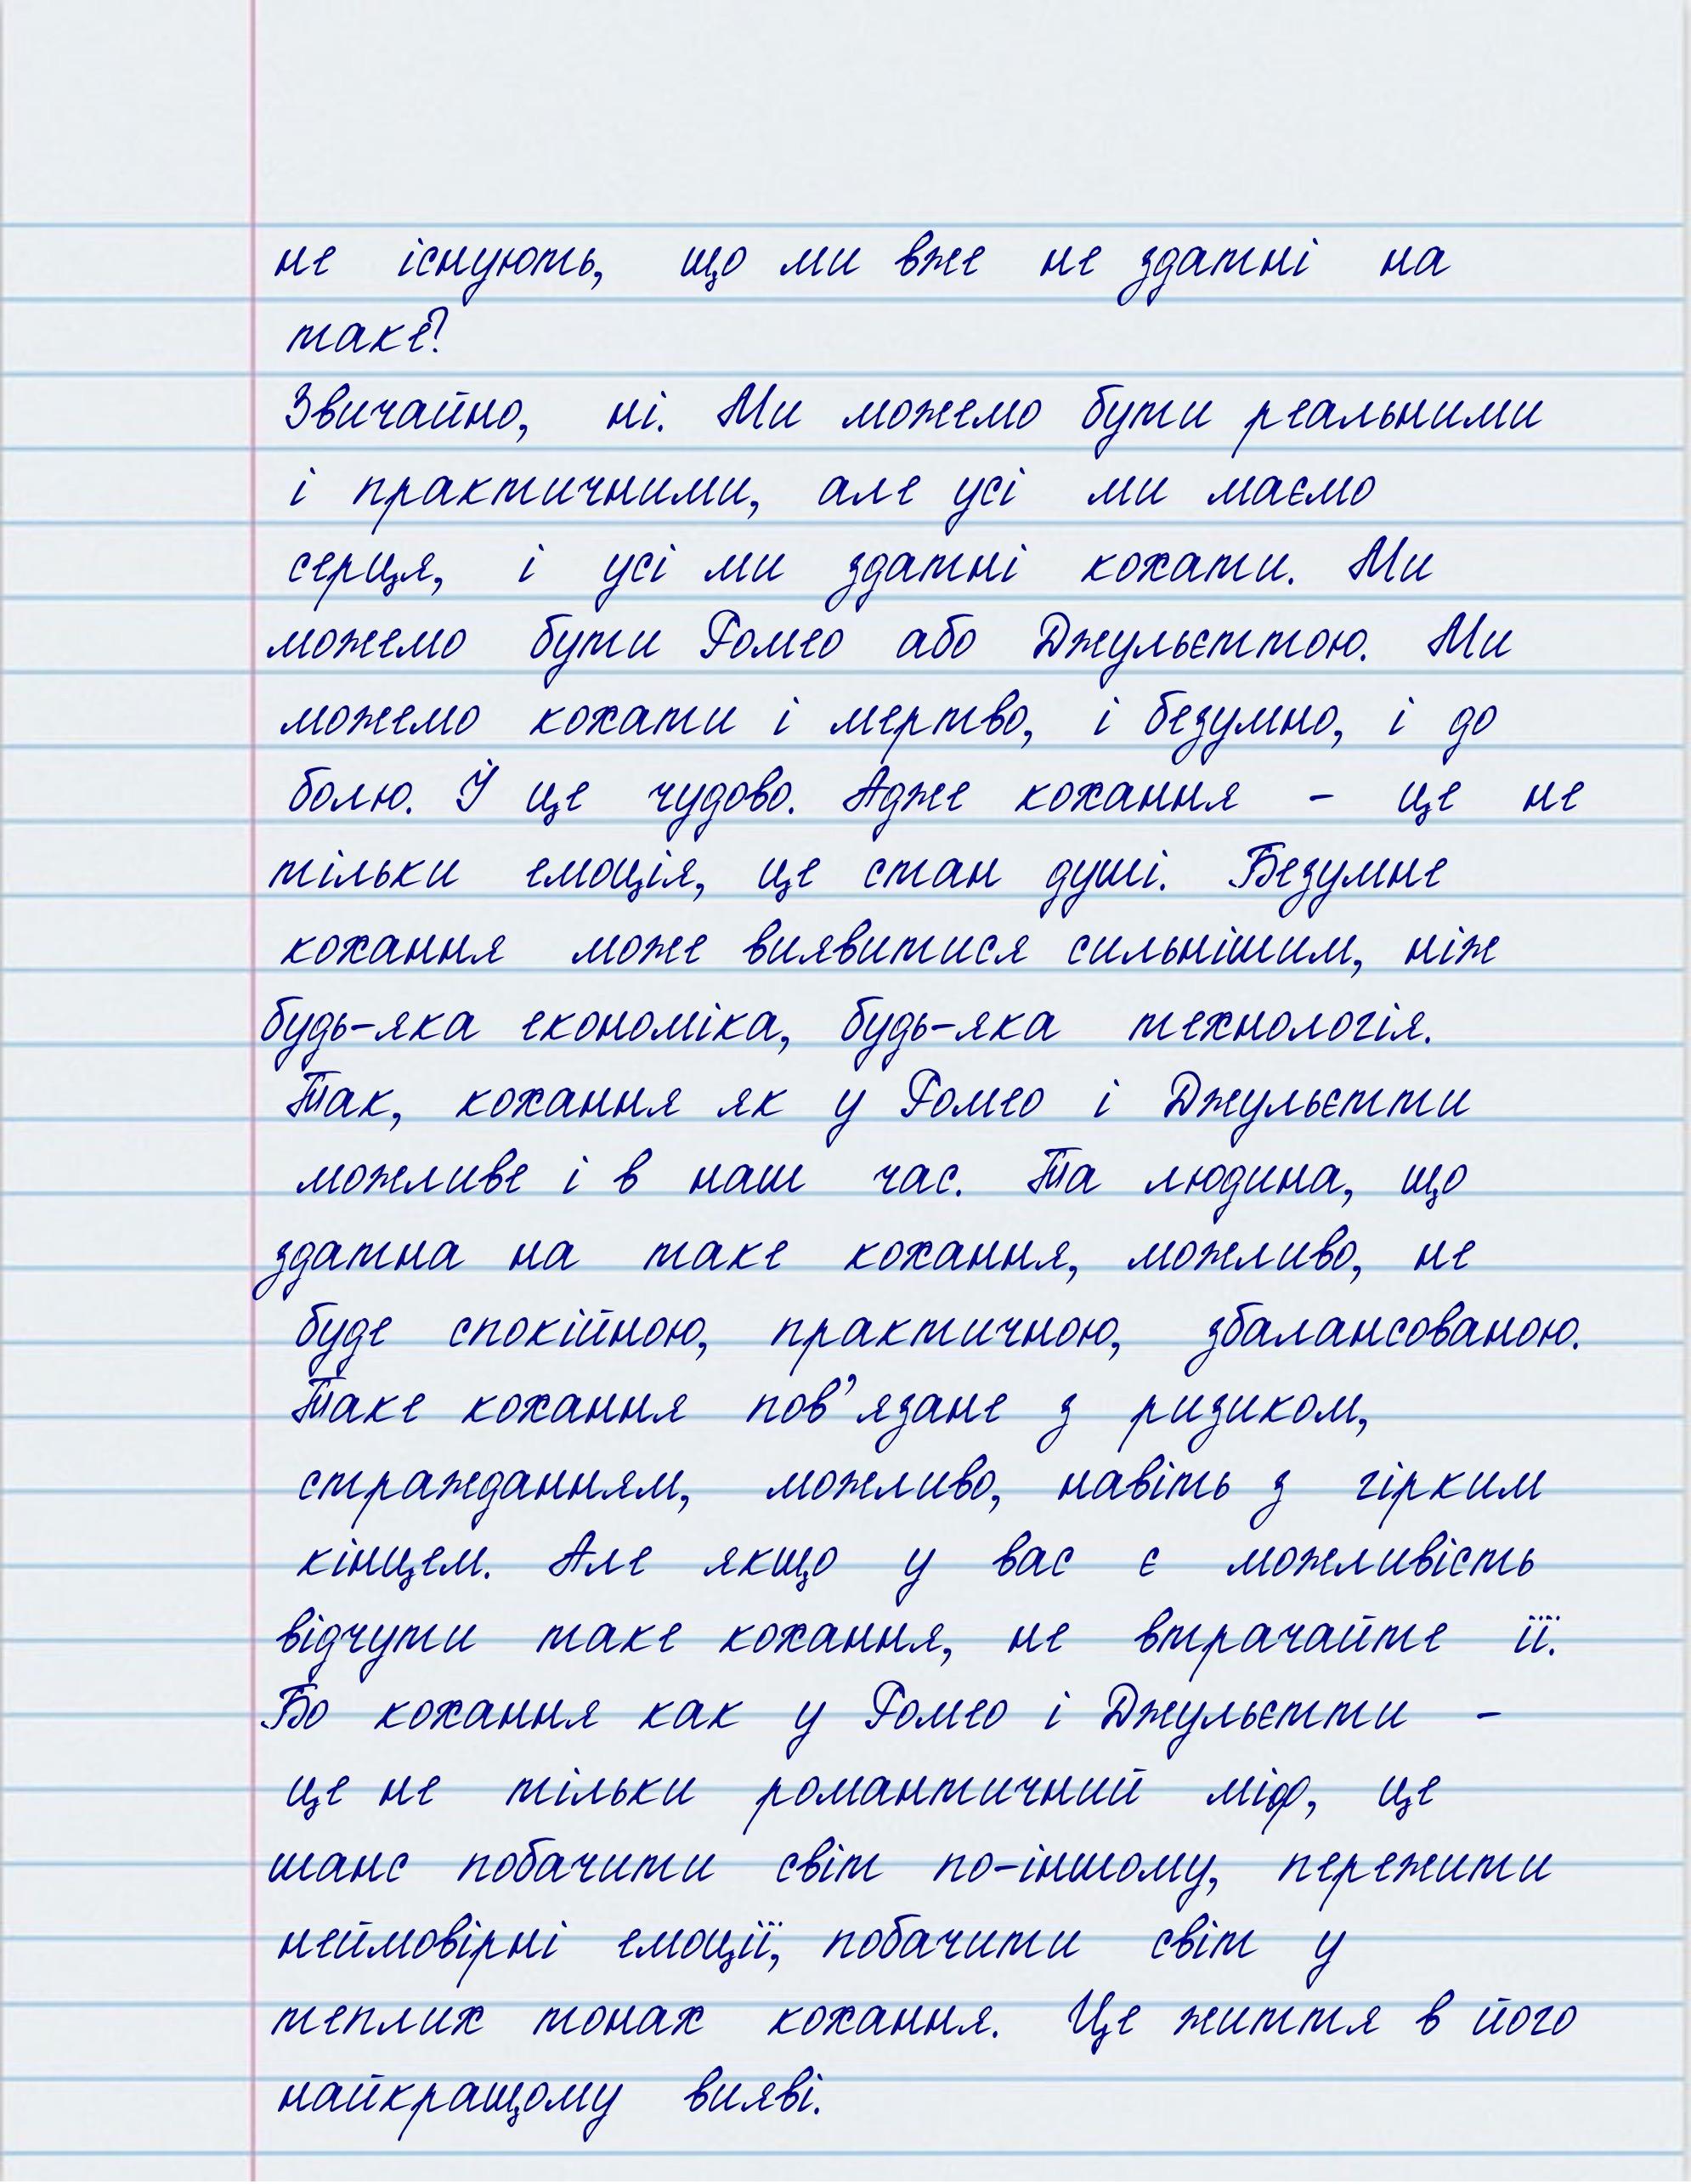 не існують, що ми вже не здатні на
таке?
Звичайно, ні. Ми можемо бути реальними
і практичними, але усі ми маємо
серця, і усі ми здатні кохати. Ми
можемо бути Ромео або Джульєттою. Ми
можемо кохати і мертво, і безумно, і до
болю. Й це чудово. Адже кохання – це не
тільки емоція, це стан душі. Безумне
кохання може виявитися сильнішим, ніж
будь-яка економіка, будь-яка технологія.
Так, кохання як у Ромео і Джульєтти
можливе і в наш час. Та людина, що
здатна на таке кохання, можливо, не
буде спокійною, практичною, збалансованою.
Таке кохання пов’язане з ризиком,
стражданням, можливо, навіть з гірким
кінцем. Але якщо у вас є можливість
відчути таке кохання, не втрачайте її.
Бо кохання как у Ромео і Джульєтти –
це не тільки романтичний міф, це
шанс побачити світ по-іншому, пережити
неймовірні емоції, побачити світ у
теплих тонах кохання. Це життя в його
найкращому вияві.